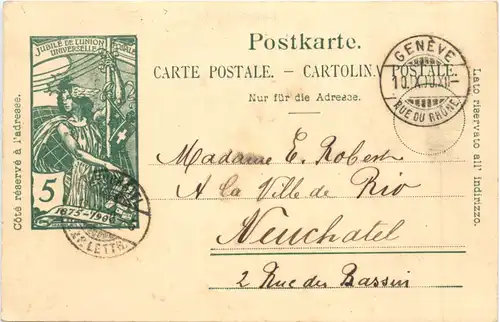 Postkarte.
CARTE POSTALE. — CARTOLINA POSTALE.
Nur für die Adresse.
Côté réservé à l'adresse.
Lato riservato all' indirizzo.
JUBILÉ DE L'UNION
UNIVERSELLE
5
1875-1900
GENÈVE
RUE DU RHÔNE
LETTR
Madame E. Robert
A la Ville de Rio
Neuchatel
2 Rue des Bassin